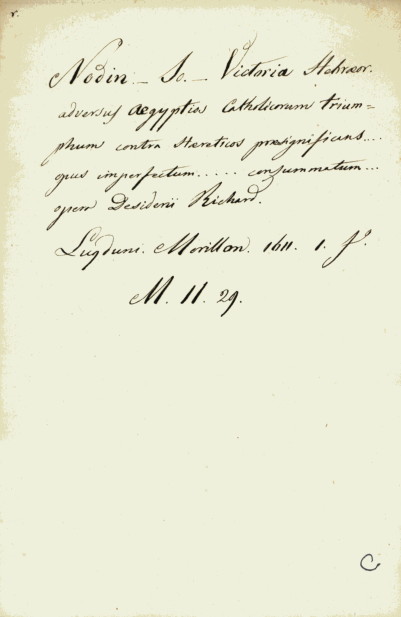 Nodin - Jo. - Victoria Hebræor.
adversus ægyptios Catholicorum trium=
phum contra Hæreticos præsignificans....
opus imperfectum..... consummatum...
opera Desiderii Richard.
Lugduni. Morillon. 1611. 1. fº.
M. 11. 29.
C